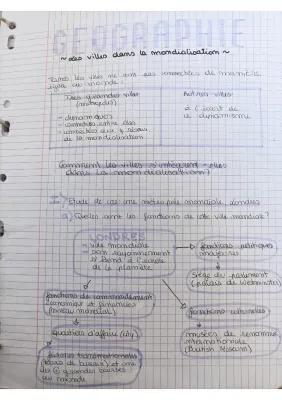 GEOGRAPHIE
~ des villes dans la mondialisation ~
Toutes les villes ne sont pas connectées de manière
au monde :
Des grandes villes
(métropoles)
- dynamiques
- connectées entre elles
- connectées aux
de la mondialisation
Autres villes
à l'écart de
ce dynamisme
Comment les villes s'intègrent-elles
dans la mondialisation ?
I) Etude de cas une métropole mondiale, Londres
a) Quelles sont les fonctions de cette ville mondiale ?
LONDRES
- ville mondiale
- son rayonnement
s'étend à l'échelle
de la planète
fonctions politiques
majeures
Siège du parlement
(palais de Westminster)
fonctions de commandement
économique et financières
(niveau mondial)
fonctions culturelles
quartiers d'affaire (city)
musées de renommée
internationale
(British Museum)
firmes transnationales
(bourse) et une
des grandes bourses
au monde